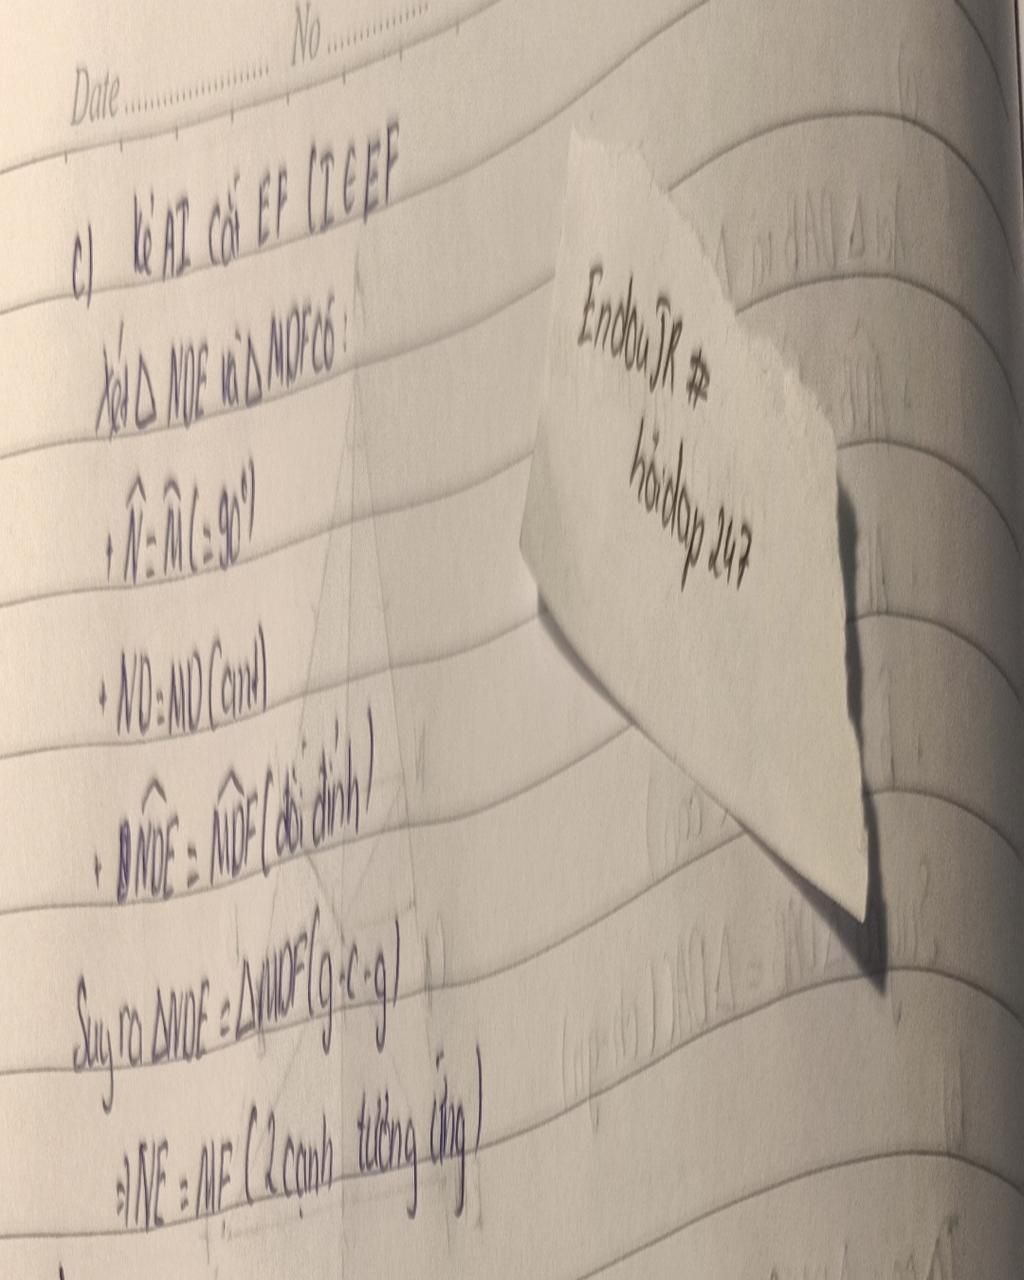 Date ........................ No ................
c) kẻ AI cắt EF (I ∈ EF
Xét Δ NDE và Δ MDF có:
+ N̂ = M̂ (= 90°)
+ ND = MD (cmt)
+ NDE = MDF (đối đỉnh)
Suy ra ΔNDE = ΔMDF (g-c-g)
=) NE = MF (2 cạnh tương ứng)
EndouJR #
hoidap 247